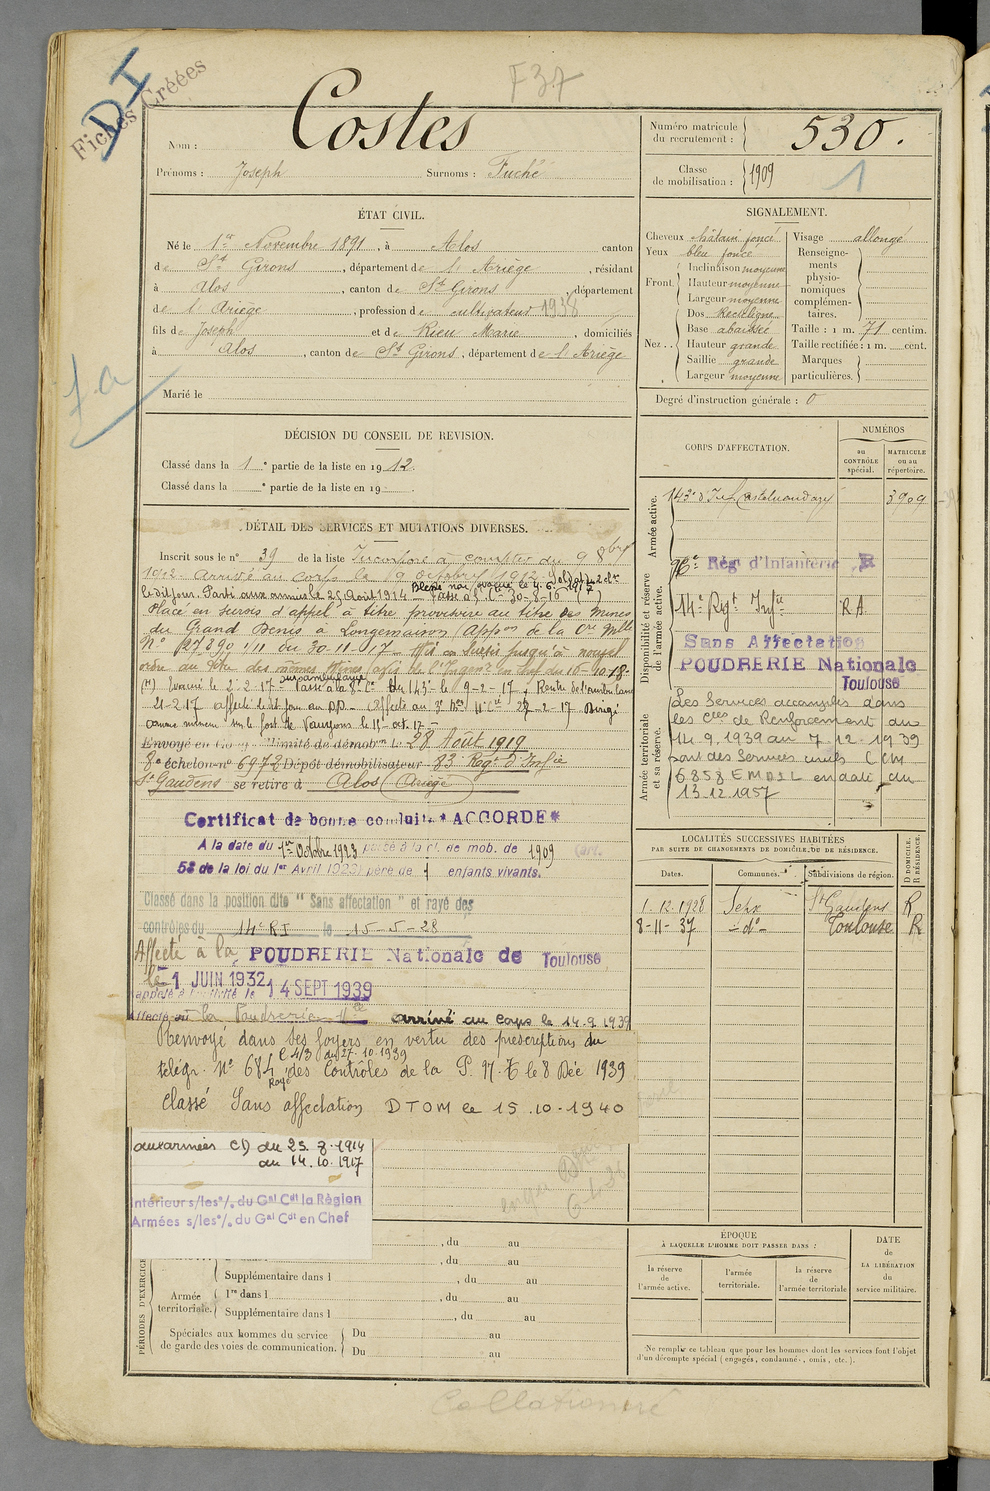 Fiches Créées
DI
F37
Nom : Costes
Prénoms : Joseph Surnoms : Fuché
Numéro matricule du recrutement : 530.
Classe de mobilisation : 1909
1
ÉTAT CIVIL.
Né le 1er Novembre 1891, à Alos canton
de St Girons, département de l'Ariège, résidant
à Alos, canton de St Girons, département
de l'Ariège, profession de cultivateur 1938
fils de Joseph et de Rieu Marie, domiciliés
à Alos, canton de St Girons, département de l'Ariège
Marié le
SIGNALEMENT.
Cheveux châtain foncé
Yeux bleu foncé
Front. Inclinaison moyenne
Hauteur moyenne
Largeur moyenne
Nez.. Dos Rectiligne
Base abaissée
Hauteur grande
Saillie grande
Largeur moyenne
Visage allongé
Renseignements physionomiques complémentaires.
Taille : 1 m. 71 centim.
Taille rectifiée : 1 m. cent.
Marques particulières.
Degré d'instruction générale : 0
DÉCISION DU CONSEIL DE REVISION.
Classé dans la 1e partie de la liste en 1912.
Classé dans la e partie de la liste en 19
CORPS D'AFFECTATION.
NUMÉROS
au CONTRÔLE spécial.
MATRICULE ou au répertoire.
Armée active.
143e d'Inf Castelnaudary 3909
Disponibilité et réserve de l'armée active.
Rég d'Infanterie
14e Regt Infie R.A.
Sans Affectation
POUDRERIE Nationale
Toulouse
Armée territoriale et sa réserve.
Les Services accomplis dans
les Cies de Renforcement du
14.9.1939 au 7.12.1939
sont des Services civils CCM
16.858 EMD2L en date du
13.12.1957
DÉTAIL DES SERVICES ET MUTATIONS DIVERSES.
Inscrit sous le n° 39 de la liste Incorporé à compter du 9 8bre
1912. Arrivé au corps le 9 octobre 1912 Soldat de 2e cl
le dit jour. Parti aux armées le 25 Août 1914
Placé en sursis d'appel à titre provisoire au titre des Mines
du Grand Denis à Longemaison (Appon de la Cre Mlle
N° 127890 1/11 du 30-11-17
ordre au titre des mêmes Mines
Evacué le 2-2-17 Passé à la 8e Cie du 143e le 9-2-17
28-2-17 Dirigé
Envoyé en Congé illimité de démobon le 28 Août 1919
8e échelon n° 6972 Dépôt démobilisateur 83e Regt d'Infie
St Gaudens se retire à Alos (Ariège)
Certificat de bonne conduite * ACCORDÉ *
A la date du 1er Octobre 1923 porté à la cl. de mob. de 1909 (art.
58 de la loi du 1er Avril 1923) père de enfants vivants.
Classé dans la position dite " Sans affectation " et rayé des
contrôles du 14e RI le 15-5-28
Affecté à la POUDRERIE Nationale de Toulouse
le 1 JUIN 1932
rappelé à l'activité le 14 SEPT 1939
Affecté à la Poudrerie Nle arrivé au corps le 14.9.1939
Renvoyé dans ses foyers en vertu des prescriptions du
télégr. N° 684 C 4/3 du 27.10.1939 Rayé des Contrôles de la P.N.T le 8 Déc 1939
Classé Sans affectation DTOM le 15.10.1940
aux armées CD du 25.8.1914
au 14.10.1917
Intérieur s/les o/. du Gal Cdt la Région
Armées s/les o/. du Gal Cdt en Chef
LOCALITÉS SUCCESSIVES HABITÉES
PAR SUITE DE CHANGEMENTS DE DOMICILE OU DE RÉSIDENCE.
Dates. Communes. Subdivisions de région. D DOMICILE. R RÉSIDENCE.
1.12.1928 Seix St Gaudens R
8-11-37 -do- Toulouse R
PÉRIODES D'EXERCICES
, du au
, du au
Supplémentaire dans l , du au
Armée territoriale. 1re dans l , du au
Supplémentaire dans l , du au
Spéciales aux hommes du service de garde des voies de communication. Du au
Du au
ÉPOQUE
À LAQUELLE L'HOMME DOIT PASSER DANS :
la réserve de l'armée active.
l'armée territoriale.
la réserve de l'armée territoriale
DATE DE LA LIBÉRATION du service militaire.
Ne remplir ce tableau que pour les hommes dont les services font l'objet
d'un décompte spécial (engagés, condamnés, omis, etc.).
Collationné